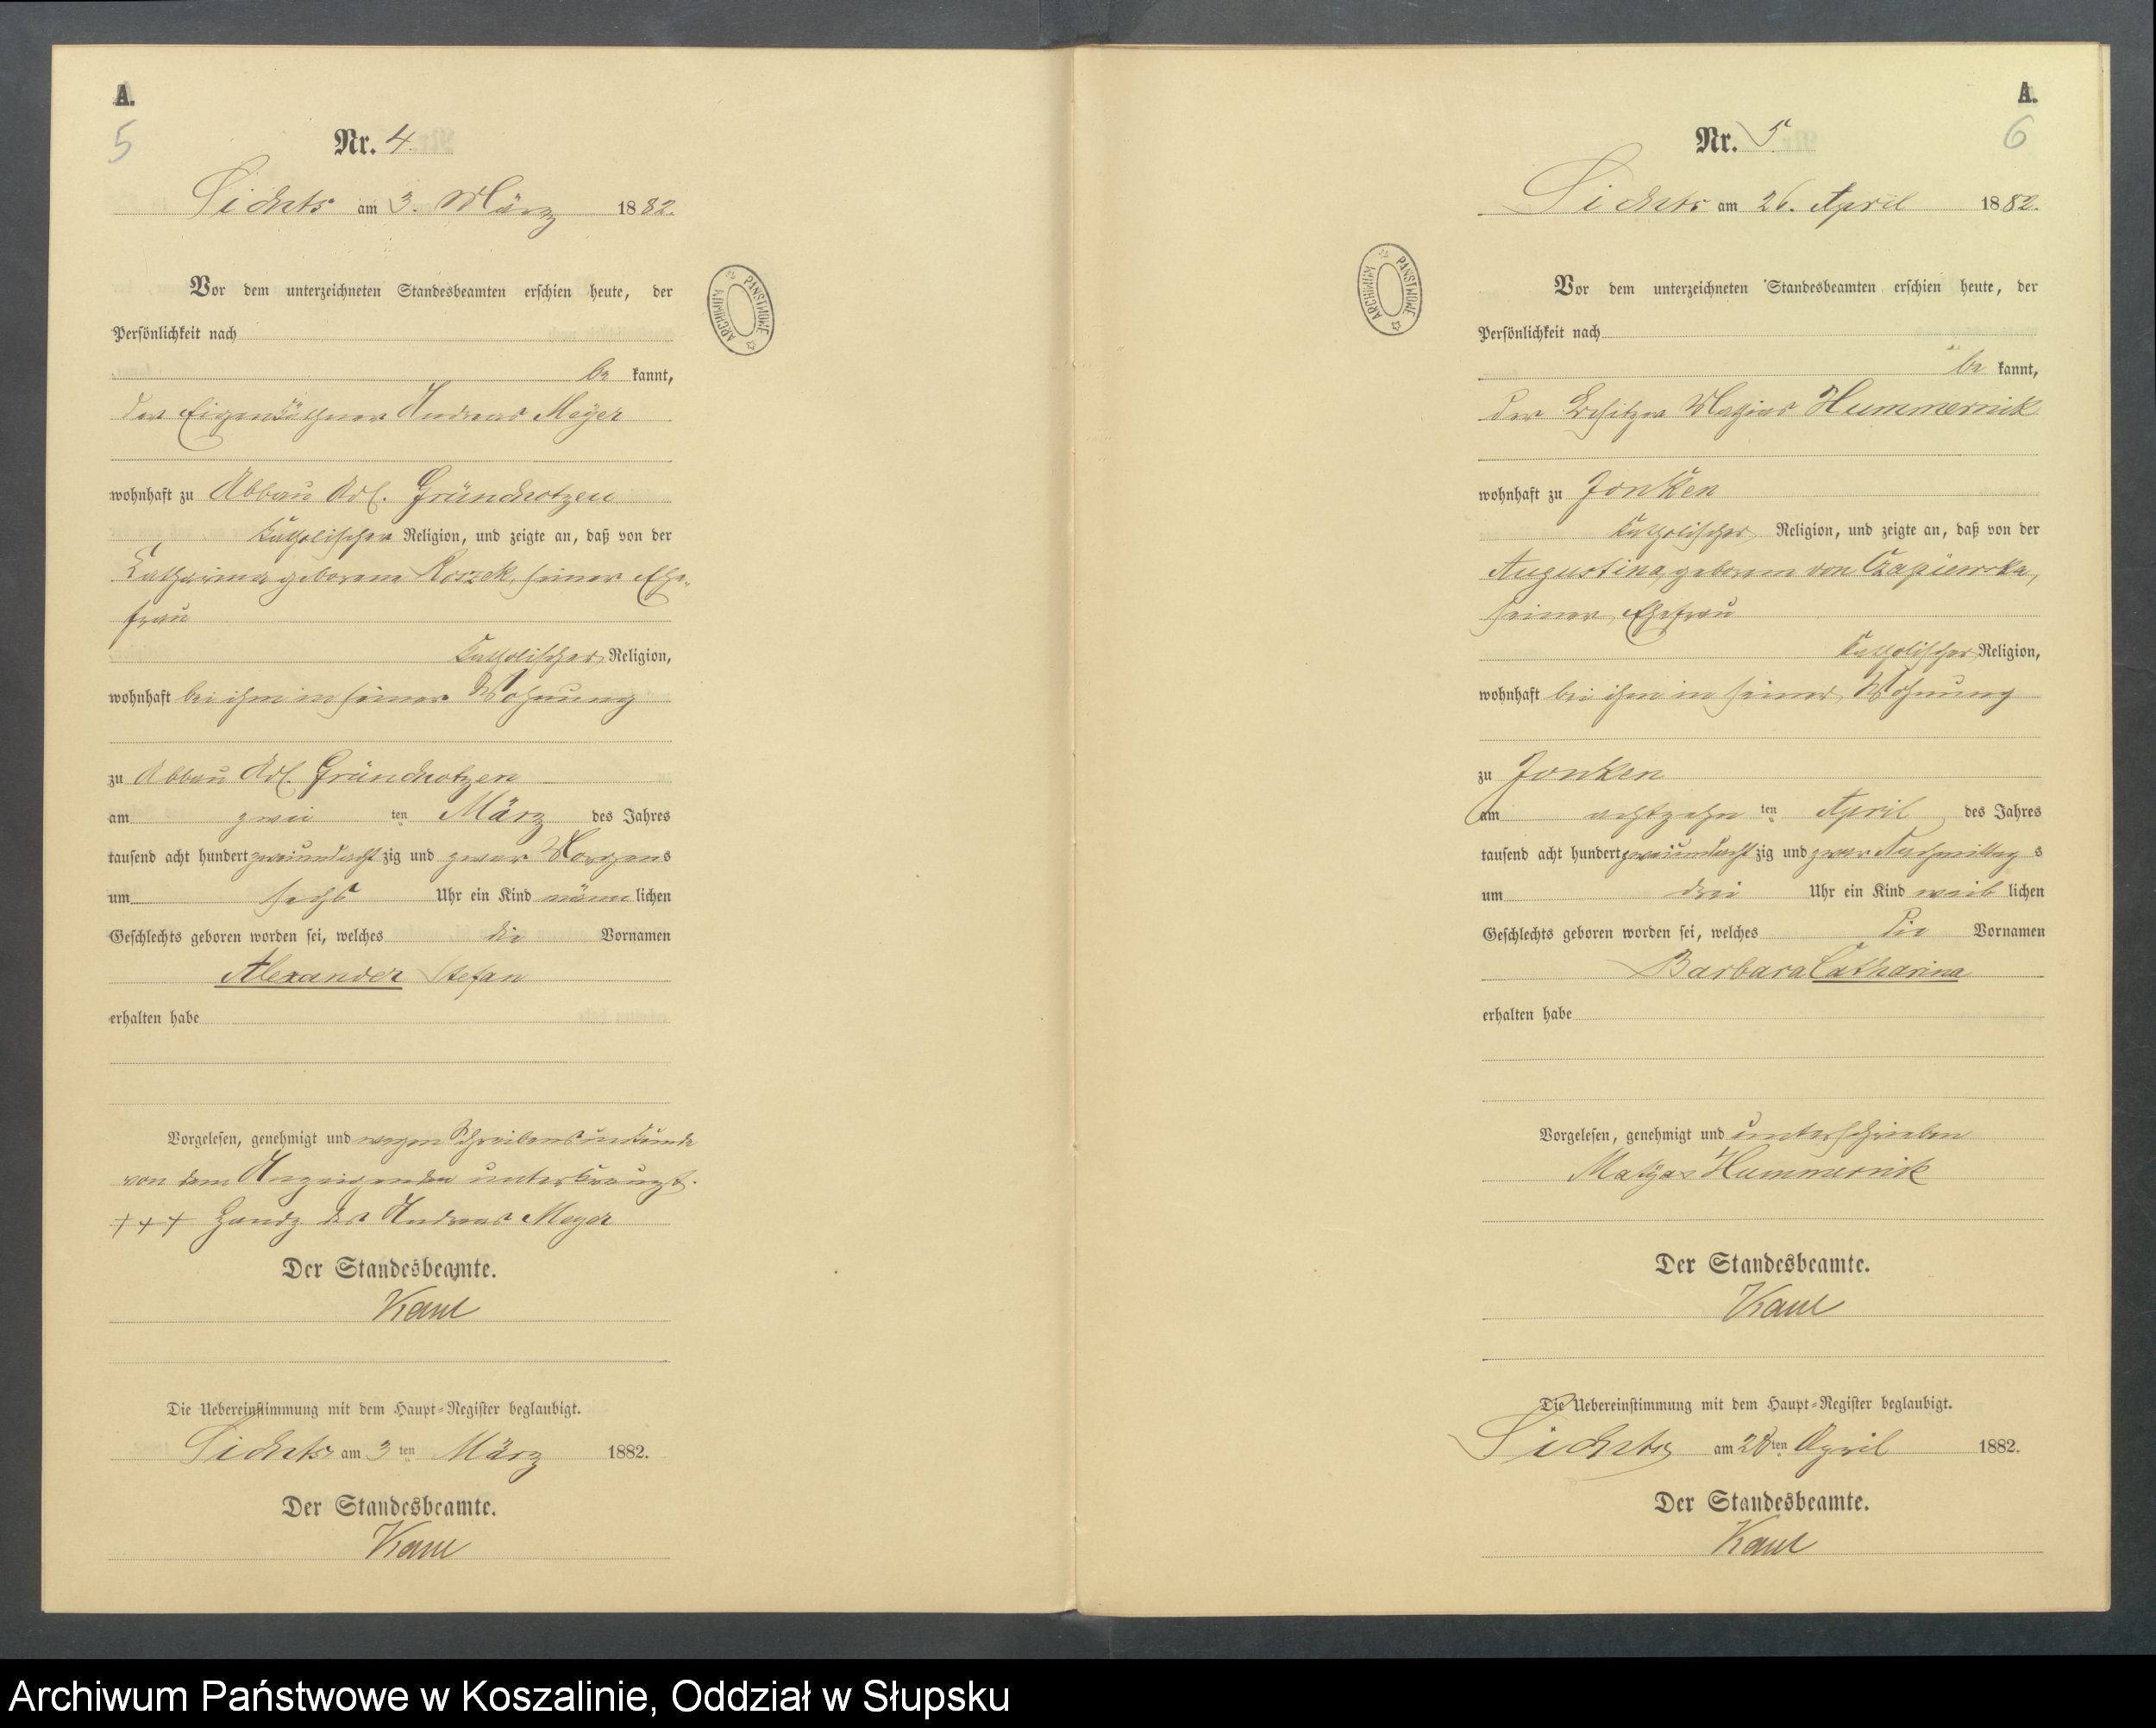 A.
5
Nr. 4.
Lichts am 3. März 1882.
Vor dem unterzeichneten Standesbeamten erschien heute, der
Persönlichkeit nach
be kannt,
der Eigenkäthner Andreas Meyer
wohnhaft zu Abbau Adl. Gründchotzen
katholischer Religion, und zeigte an, daß von der
Catharina geborene Roszek, seiner Ehe-
frau
katholischer Religion,
wohnhaft bei ihm in seiner Wohnung
zu Abbau Adl. Gründchotzen
am zwei ten März des Jahres
tausend acht hundert zweiundacht zig und zwar Morgens
um sechs Uhr ein Kind männ lichen
Geschlechts geboren worden sei, welches die Vornamen
Alexander Stefan
erhalten habe
Vorgelesen, genehmigt und wegen Schreibensunkunde
von dem Anzeigenden unterkreuzt.
+++ Handz. des Andreas Meyer
Der Standesbeamte.
Kaul
Die Uebereinstimmung mit dem Haupt-Register beglaubigt.
Lichts am 3 ten März 1882.
Der Standesbeamte.
Kaul
ARCHIWUM PAŃSTWOWE
A.
6
Nr. 5.
Lichts am 26. April 1882.
Vor dem unterzeichneten Standesbeamten erschien heute, der
Persönlichkeit nach
be kannt,
der Besitzer Mathias Hummernik
wohnhaft zu Jonken
katholischer Religion, und zeigte an, daß von der
Augustina, geborene von Czapiewska,
seiner Ehefrau
katholischer Religion,
wohnhaft bei ihm in seiner Wohnung
zu Jonken
am achtzehn ten April des Jahres
tausend acht hundert zweiundacht zig und zwar Nachmittag s
um drei Uhr ein Kind weib lichen
Geschlechts geboren worden sei, welches die Vornamen
Barbara Catharina
erhalten habe
Vorgelesen, genehmigt und unterschrieben
Matyas Hummernik
Der Standesbeamte.
Kaul
Die Uebereinstimmung mit dem Haupt-Register beglaubigt.
Lichts am 28 ten April 1882.
Der Standesbeamte.
Kaul
ARCHIWUM PAŃSTWOWE
Archiwum Państwowe w Koszalinie, Oddział w Słupsku